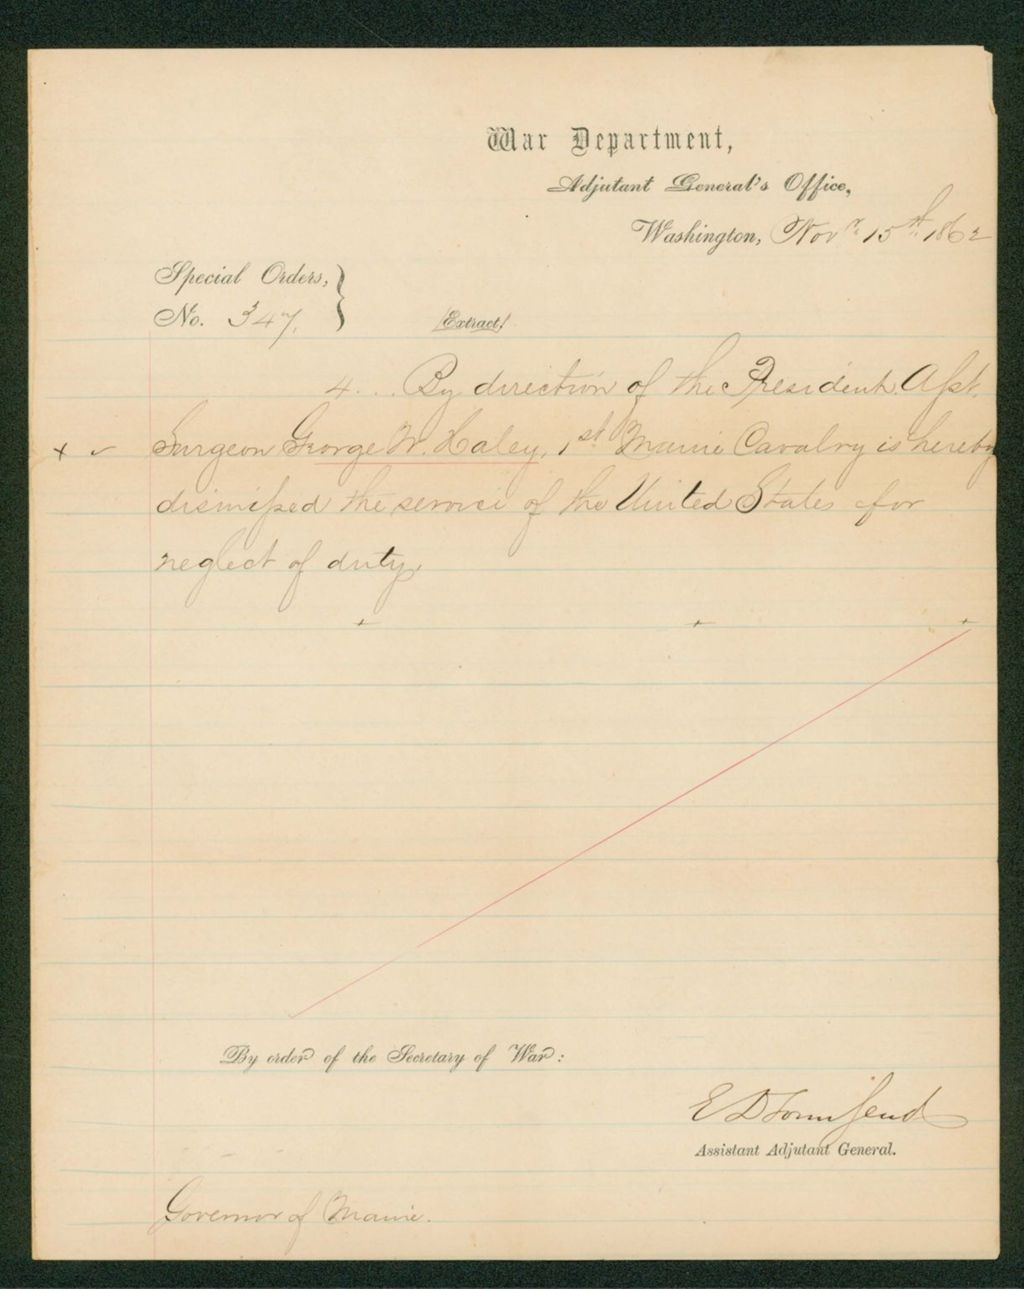 War Department,
Adjutant General's Office,
Washington, Novr. 15th 1862
Special Orders,
No. 347.
(Extract)
4... By direction of the President. Asst.
+ ✓ Surgeon George W. Haley, 1st Maine Cavalry is hereby
dismissed the service of the United States for
neglect of duty.
+ + +
By order of the Secretary of War:
E D Townsend
Assistant Adjutant General.
Governor of Maine.